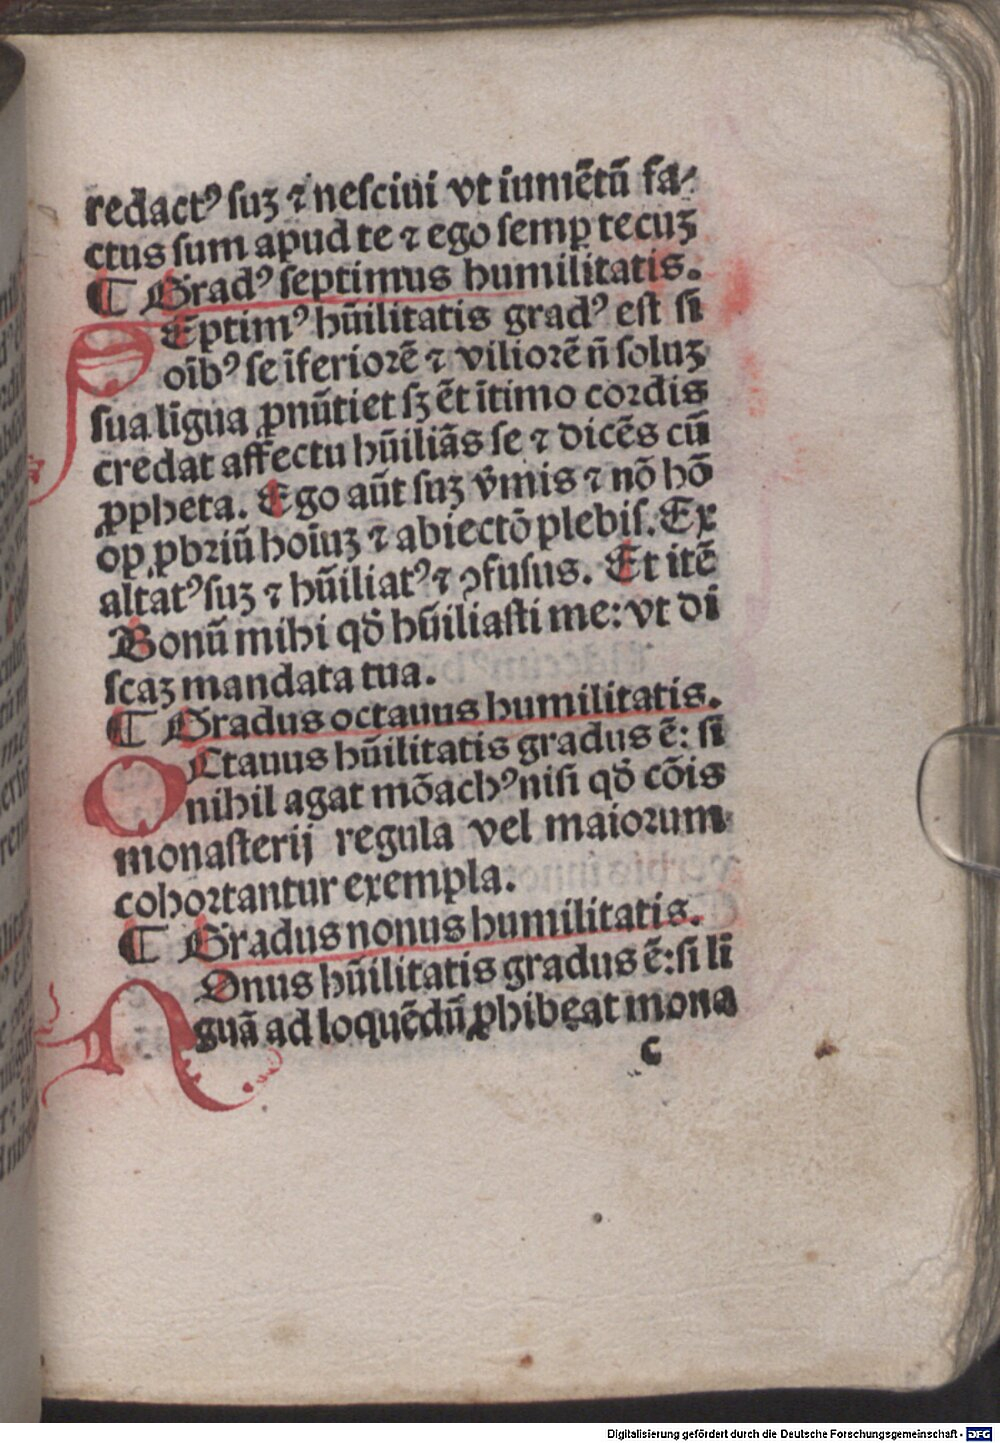 redactꝰ ſuꝫ ⁊ neſciui vt iumētū fa⸗
ctus ſum apud te ⁊ ego ſemꝑ tecuꝫ
¶ Gradꝰ ſeptimus humilitatis.
SEptimꝰ hūilitatis gradꝰ eſt ſi
oībꝰ ſe īferiorē ⁊ viliorē n̄ ſoluꝫ
ſua līgua ꝓnūtiet ſꝫ ēt ītimo cordis
credat affectu hūiliās ſe ⁊ dicēs cū
ꝓpheta. Ego aūt ſuꝫ v̄mis ⁊ nō hō
oꝑ ꝓbriū hoīuꝫ ⁊ abiectō plebiſ. Ex
altatꝰ ſuꝫ ⁊ hūiliatꝰ ⁊ ꝯfuſus. Et itē
Bonū mihi qd̄ hūiliaſti me: vt di
ſcaꝫ mandata tua.
¶ Gradus octauus humilitatis.
OCtauus hūilitatis gradus ē: ſi
nihil agat mōachꝰ niſi qd̄ cōis
monaſterij regula vel maiorum
cohortantur exempla.
¶ Gradus nonus humilitatis.
NOnus hūilitatis gradus ē: ſi lī
guā ad loquēdū ꝓhibeat mona
c
Digitalisierung gefördert durch die Deutsche Forschungsgemeinschaft - DFG